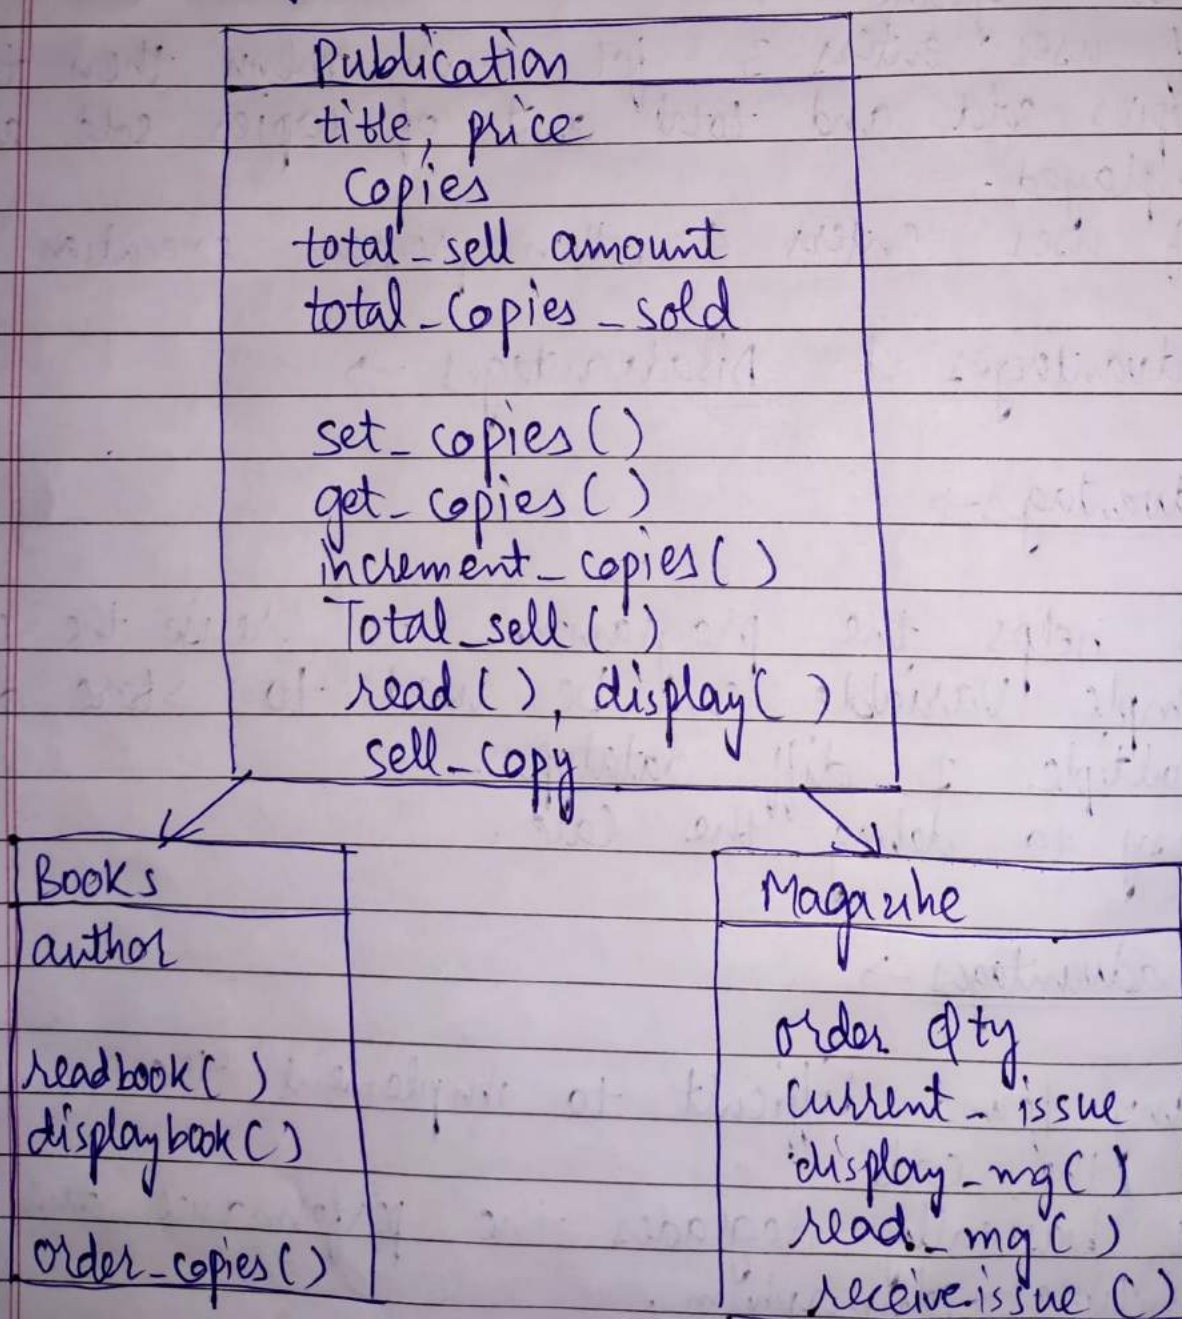 Publication
title, price
Copies
total_sell amount
total_copies_sold
set_copies()
get_copies()
increment_copies()
Total_sell()
read(), display()
sell_copy
Books
author
readbook()
displaybook()
order_copies()
Magazine
order Qty
current_issue
display_mg()
read_mg()
receive issue ()